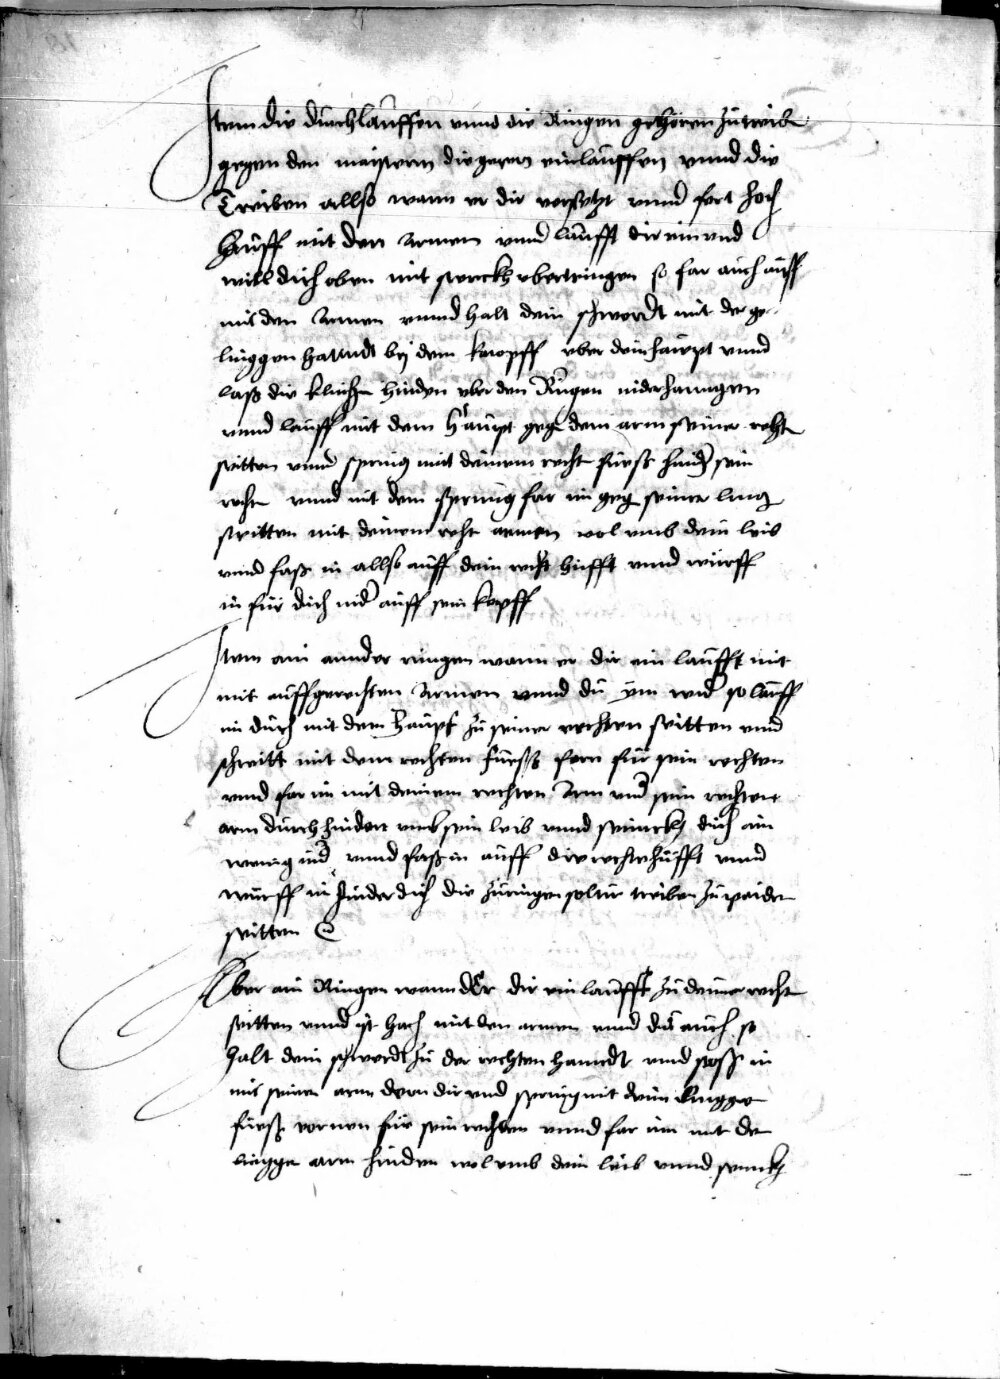 Item die durchlauffen vnnd die Ringen gehören zu treibe
gegen den maistern die geren einlauffen vnnd die
Treiben allso wann er dir versetzt vnnd fert hoch
Hauff mit den Armen vnnd laufft dir ein vnd
will dich oben mit sterckh vberdringen so far auch auff
mit den Armen vnnd halt dein schwerdt mit der ge
linggen hanndt bej dem knopff vber dein haupt vnnd
laß die klingen hinden vber den Rugen niderhanngen
vnnd lauff mit dem Haupt gege dem arm seiner recht
seitten vnnd spring mit deinem recht fuess hinder sein
recht vnnd mit dem sprung far im geg seiner ling
seitten mit deinem recht armen wol vmb dein leib
vnnd faß in allso auff dein recht hufft vnnd würff
in für dich nider auff sein kopff
Item ain annder ringen wann er dir ein laufft mit
mit auffgerechten Armen vnnd du jm wider so lauff
im durch mit dem haupt zu seiner rechten seitten vnnd
schreitt mit dem rechten fuess forn für sein rechten
vnnd far im mit deinem rechten Arm vnder sein rechten
arm durch hinden vmb sein leib vnnd sennckh dich ain
wenig nider vnnd faß in auff die recht hufft vnnd
würff in hinder dich die zu ringen soltu treiben zu paiden
seitten
Aber ain Ringen wann Er dir ein laufft zu deiner recht
seitten vnnd ist hoch mit den armen vnnd du auch so
halt dein schwerdt zu der rechten hanndt vnnd stoss in
mit seinen arm von dir vnd spring mit deim lingge
fuess vornen für sein rechten vnnd far im mit de
lingge arm hinden wol vmb dein leib vnnd sennckh